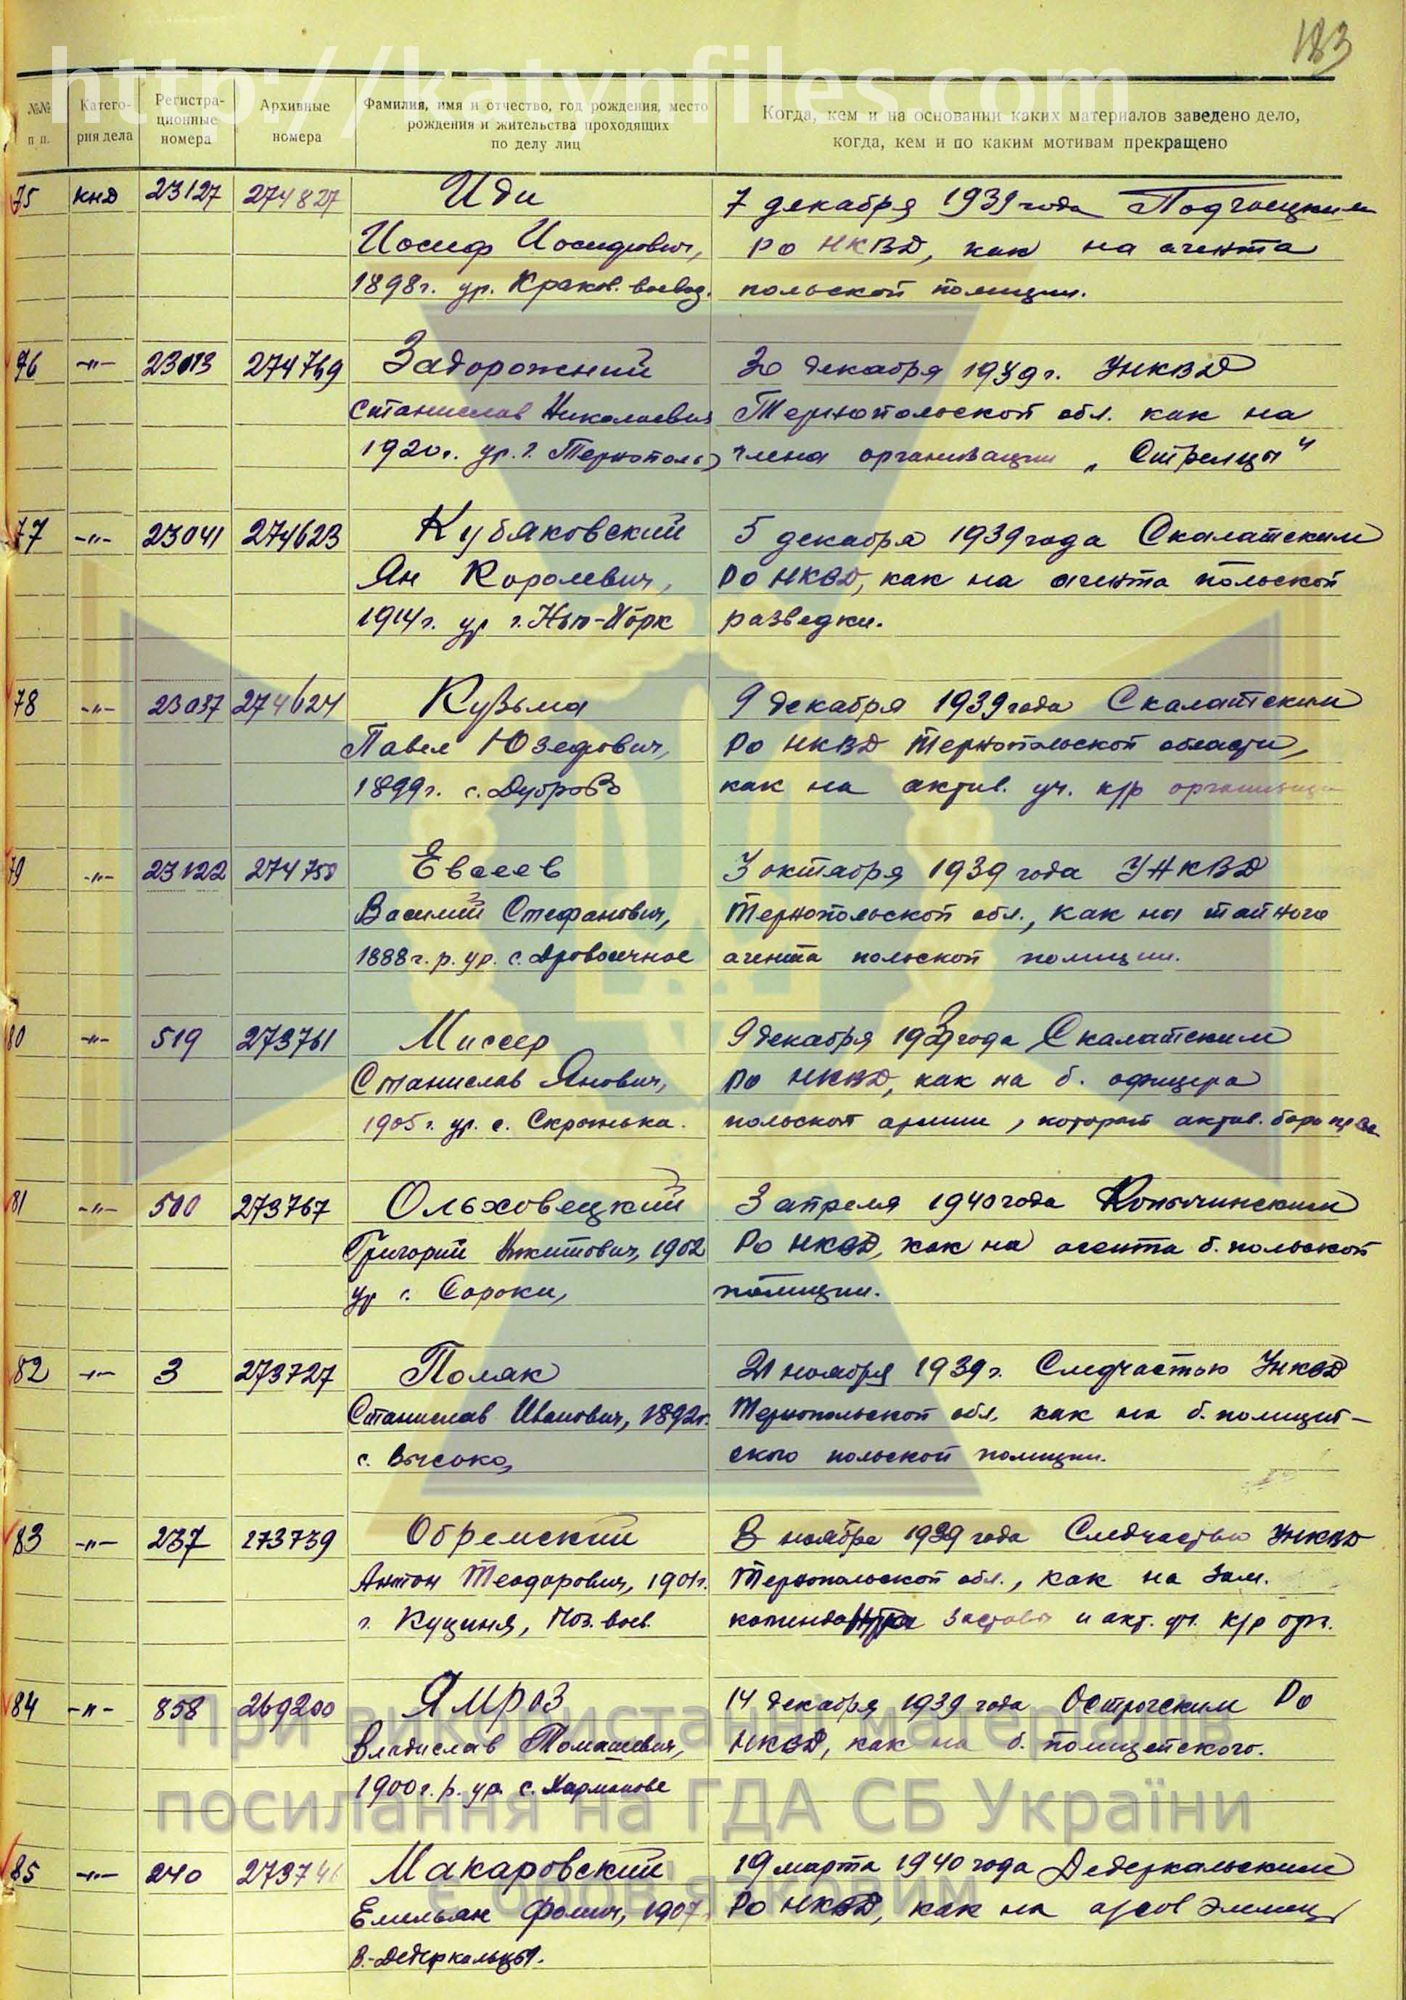 http://katynfiles.com
183
№№ п п.
Катего-
рия дела
Регистра-
ционные
номера
Архивные
номера
Фамилия, имя и отчество, год рождения, место
рождения и жительства проходящих
по делу лиц
Когда, кем и на основании каких материалов заведено дело,
когда, кем и по каким мотивам прекращено
75 кнд 23127 274827 Иди 7 декабря 1939 года Подгаецким
Иосиф Иосифович, РО НКВД, как на агента
1898 г. ур. Краков. воевод. польской полиции.
76 -"- 23013 274769 Задорожний 30 декабря 1939 г. УНКВД
Станислав Николаевич Тернопольской обл. как на
1920 г. ур. г. Тернополь члена организации „Стрелцы"
77 -"- 23041 274623 Кубяковский 5 декабря 1939 года Скалатским
Ян Каролевич, РО НКВД, как на агента польской
1914 г. ур г. Нью-Йорк разведки.
78 -"- 23037 274624 Кузьма 9 декабря 1939 года Скалатским
Павел Юзефович, РО НКВД Тернопольской области,
1899 г. с. Дуброво как на актив. уч. к/р организации
79 -"- 23122 274758 Евсеев 3 октября 1939 года УНКВД
Василий Стефанович, Тернопольской обл., как на тайного
1888 г. р. ур. с. агента польской полиции.
80 -"- 519 273761 Миссер 9 декабря 1939 года Скалатским
Станислав Янович, РО НКВД, как на б. офицера
1905 г. ур. с. польской армии, который актив.
81 -"- 500 273767 Ольховецкий 3 апреля 1940 года Копычинским
Григорий Никитович, 1902 РО НКВД, как на агента б. польской
ур с. Сороки, полиции.
82 -"- 3 273727 Поляк 21 ноября 1939 г. Следчастью УНКВД
Станислав Иванович, 1892 г. Тернопольской обл. как на б. полицит-
с. Высоко, ского польской полиции.
83 -"- 237 273739 Обремский 8 ноября 1939 года Следчастью УНКВД
Антон Теодорович, 1901 г. Тернопольской обл., как на зам.
г. Куциня, Поз. воев. коменданта заставы и акт. уч. к/р орг.
84 -"- 858 269200 Ямроз 14 декабря 1939 года Острогским РО
Владислав Томашевич, НКВД, как на б. полицейского.
1900 г. р. ур. с.
85 -"- 240 Макаровский 19 марта 1940 года Дедеркальским
Емельян Фомич, 1907 РО НКВД, как на
В.-Дедеркальцы.
При використанні матеріалів
посилання на ГДА СБ України
є обов'язковим